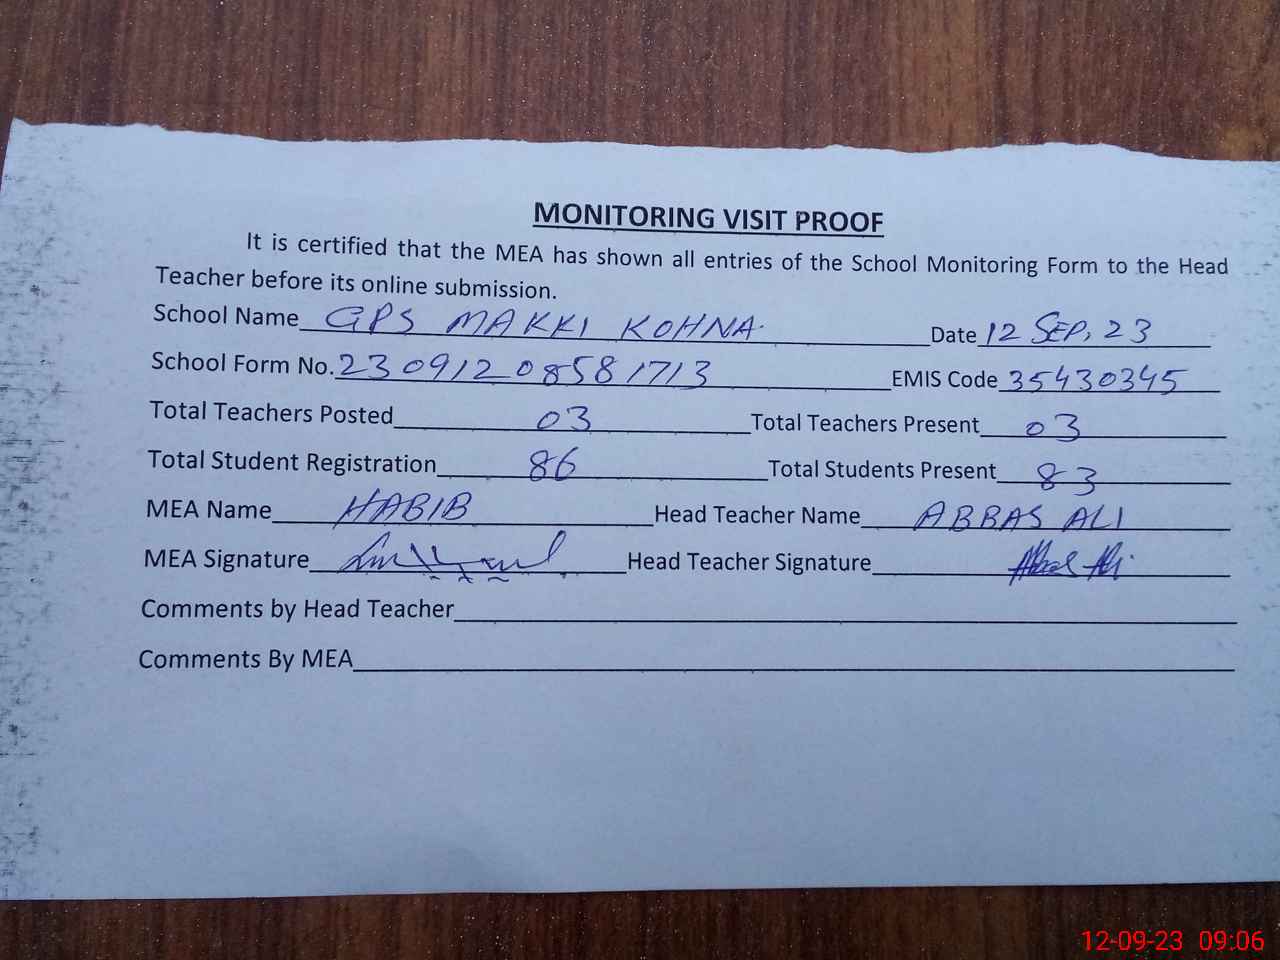 MONITORING VISIT PROOF
It is certified that the MEA has shown all entries of the School Monitoring Form to the Head
Teacher before its online submission.
School Name GPS MAKKI KOHNA Date 12 SEP, 23
School Form No. 230912 08581713 EMIS Code 35430345
Total Teachers Posted 03 Total Teachers Present 03
Total Student Registration 86 Total Students Present 83
MEA Name HABIB Head Teacher Name ABBAS ALI
MEA Signature Head Teacher Signature Abbas Ali
Comments by Head Teacher
Comments By MEA
12-09-23 09:06